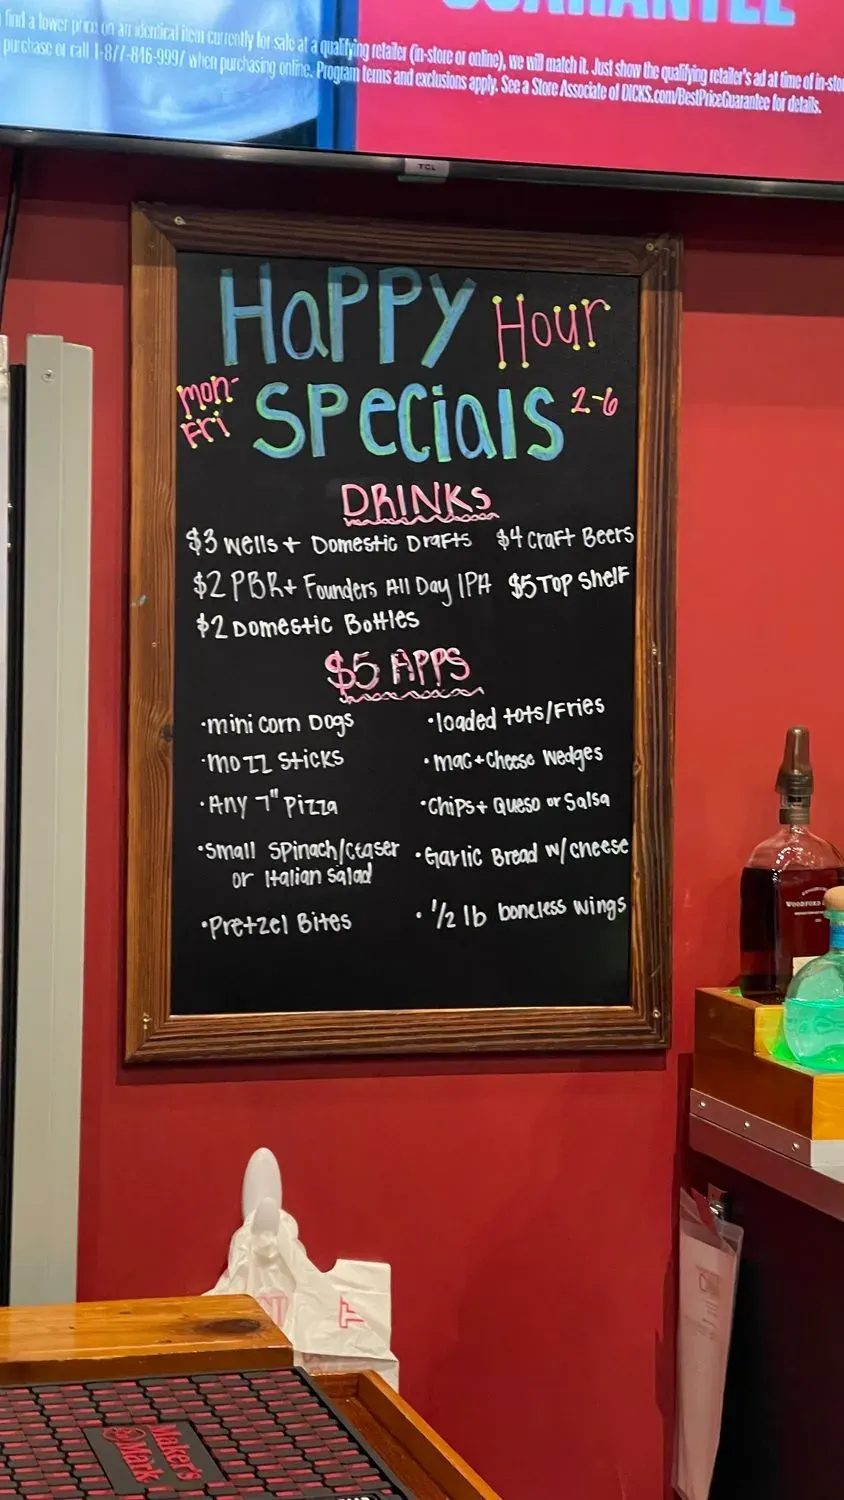 GUARANTEE
find a lower price on an identical item currently for sale at a qualifying retailer (in-store or online), we will match it. Just show the qualifying retailer's ad at time of
purchase or call 1-877-846-9997 when purchasing online. Program terms and exclusions apply. See a Store Associate of DICKS.com/BestPriceGuarantee for details.
TCL
Happy Hour
Mon-Fri Specials 2-6
DRINKS
$3 Wells + Domestic Drafts $4 Craft Beers
$2 PBR + Founders All Day IPA $5 Top Shelf
$2 Domestic Bottles
$5 APPS
·mini Corn Dogs
·mozz Sticks
·Any 7" Pizza
·Small Spinach/Ceaser
or Italian Salad
·Pretzel Bites
·loaded tots/Fries
·mac+Cheese Wedges
·Chips + Queso or Salsa
·Garlic Bread w/cheese
·1/2 lb boneless wings
WOODFORD
Maker's
Mark